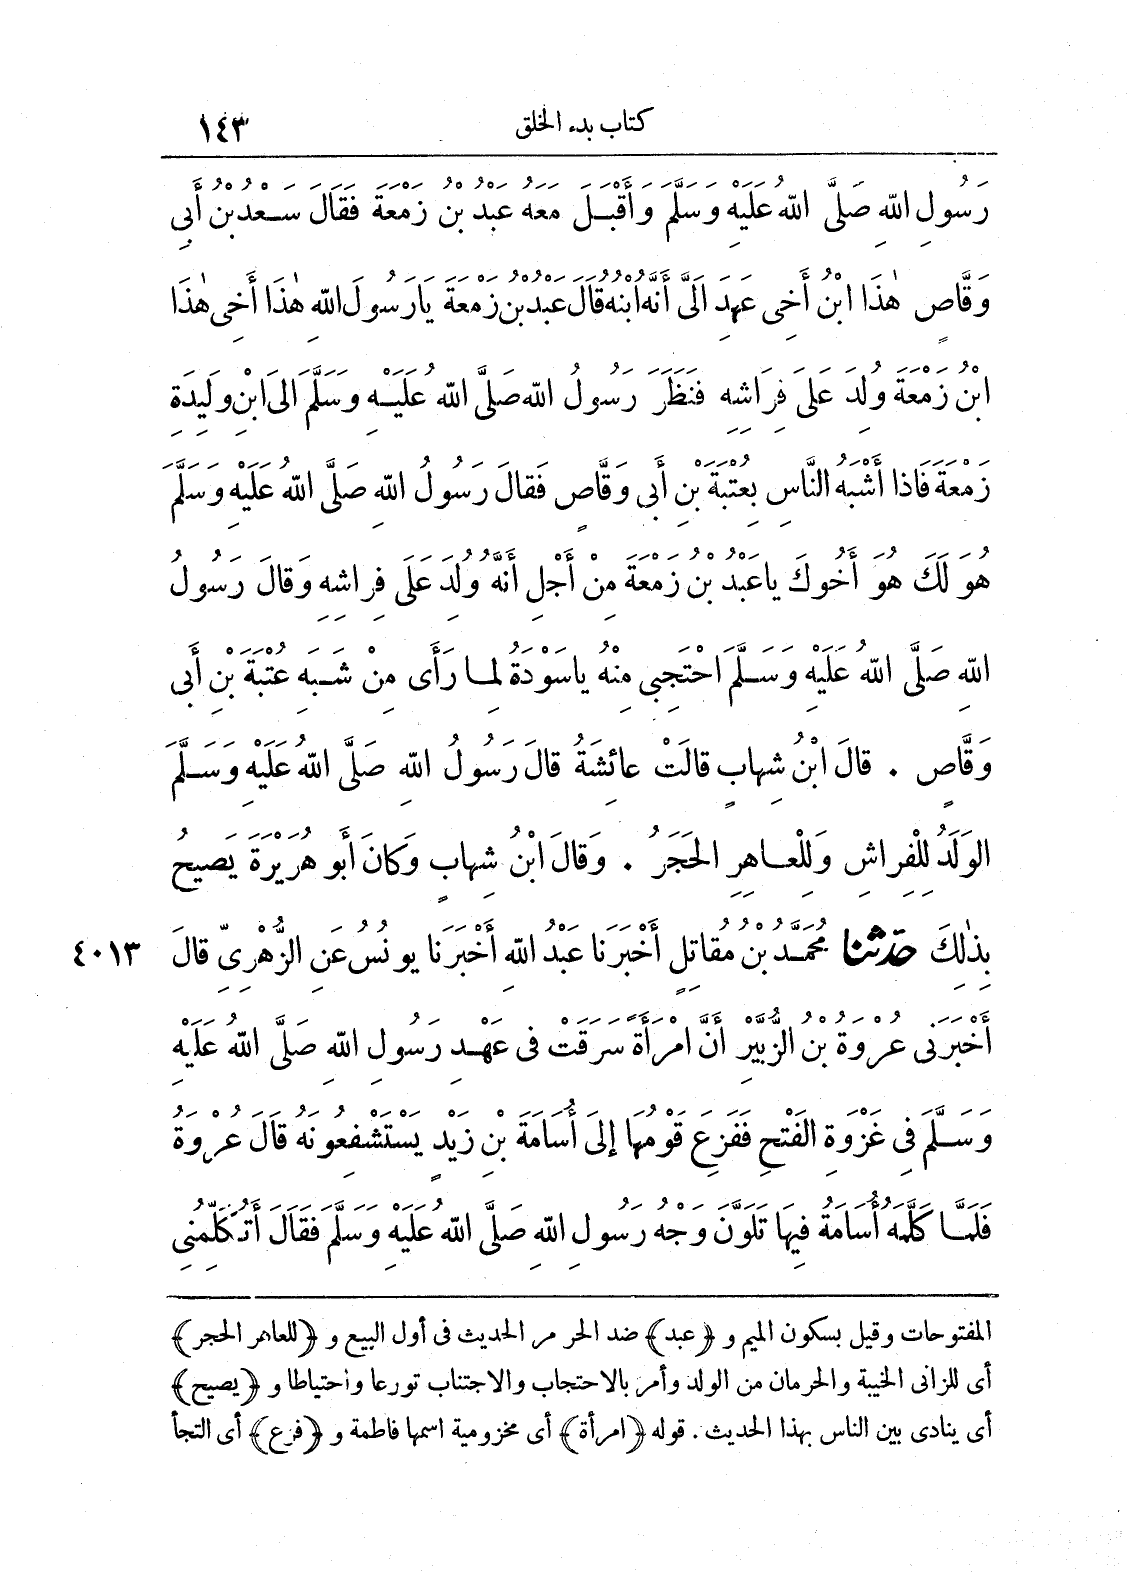 كتاب بدء الخلق ١٤٣
رَسُولِ اللهِ صَلَّى اللهُ عَلَيْهِ وَسَلَّمَ وَأَقْبَلَ مَعَهُ عَبْدُ بْنُ زَمْعَةَ فَقَالَ سَعْدُ بْنُ أَبِى
وَقَّاصٍ هٰذَا ابْنُ أَخِى عَهِدَ الَىَّ أَنَّهُ ابْنُهُ قَالَ عَبْدُ بْنُ زَمْعَةَ يَا رَسُولَ اللهِ هٰذَا أَخِى هٰذَا
ابْنُ زَمْعَةَ وُلِدَ عَلَى فِرَاشِهِ فَنَظَرَ رَسُولُ اللهِ صَلَّى اللهُ عَلَيْهِ وَسَلَّمَ الَى ابْنِ وَلِيدَةِ
زَمْعَةَ فَاذَا أَشْبَهُ النَّاسِ بِعُتْبَةَ بْنِ أَبِى وَقَّاصٍ فَقَالَ رَسُولُ اللهِ صَلَّى اللهُ عَلَيْهِ وَسَلَّمَ
هُوَ لَكَ هُوَ أَخُوكَ يا عَبْدُ بْنُ زَمْعَةَ مِنْ أَجْلِ أَنَّهُ وُلِدَ عَلَى فِرَاشِهِ وَقَالَ رَسُولُ
اللهِ صَلَّى اللهُ عَلَيْهِ وَسَلَّمَ احْتَجِبِى مِنْهُ ياسَوْدَةُ لِمَا رَأَى مِنْ شَبَهِ عُتْبَةَ بْنِ أَبِى
وَقَّاصٍ . قالَ ابْنُ شِهابٍ قالَتْ عائِشَةُ قالَ رَسُولُ اللهِ صَلَّى اللهُ عَلَيْهِ وَسَلَّمَ
الوَلَدُ لِلْفِراشِ وَلِلْعاهِرِ الحَجَرُ . وَقالَ ابْنُ شِهابٍ وَكانَ أَبو هُرَيْرَةَ يَصِيحُ
بِذٰلِكَ حدثنا مُحَمَّدُ بْنُ مُقاتِلٍ أَخْبَرَنا عَبْدُ اللهِ أَخْبَرَنا يونُسُ عَنِ الزُّهْرِىِّ قالَ ٤٠١٣
أَخْبَرَنِى عُرْوَةُ بْنُ الزُّبَيْرِ أَنَّ امْرَأَةً سَرَقَتْ فى عَهْدِ رَسُولِ اللهِ صَلَّى اللهُ عَلَيْهِ
وَسَلَّمَ فِى غَزْوَةِ الفَتْحِ فَفَزِعَ قَوْمُها إِلَى أُسَامَةَ بْنِ زَيْدٍ يَسْتَشْفِعُونَهُ قَالَ عُرْوَةُ
فَلَمَّا كَلَّمَهُ أُسَامَةُ فِيهَا تَلَوَّنَ وَجْهُ رَسُولِ اللهِ صَلَّى اللهُ عَلَيْهِ وَسَلَّمَ فَقَالَ أَتُكَلِّمُنِى
المفتوحات وقيل بسكون الميم و ﴿عبد﴾ ضد الحر مر الحديث فى أول البيع و ﴿للعاهر الحجر﴾
أى للزانى الخيبة والحرمان من الولد وأمر بالاحتجاب والاجتناب تورعا واحتياطا و ﴿يصيح﴾
أى ينادى بين الناس بهذا الحديث . قوله ﴿امرأة﴾ أى مخزومية اسمها فاطمة و ﴿فزع﴾ أى التجأ